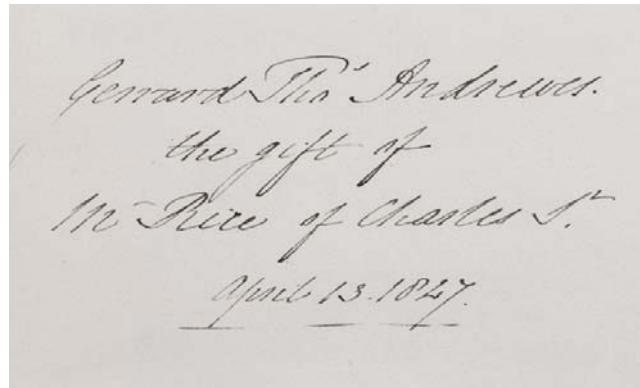 Gerrard Thoˢ Andrewes.
the gift of
Mʳ Rice of Charles Sᵗ.
April 13. 1847.